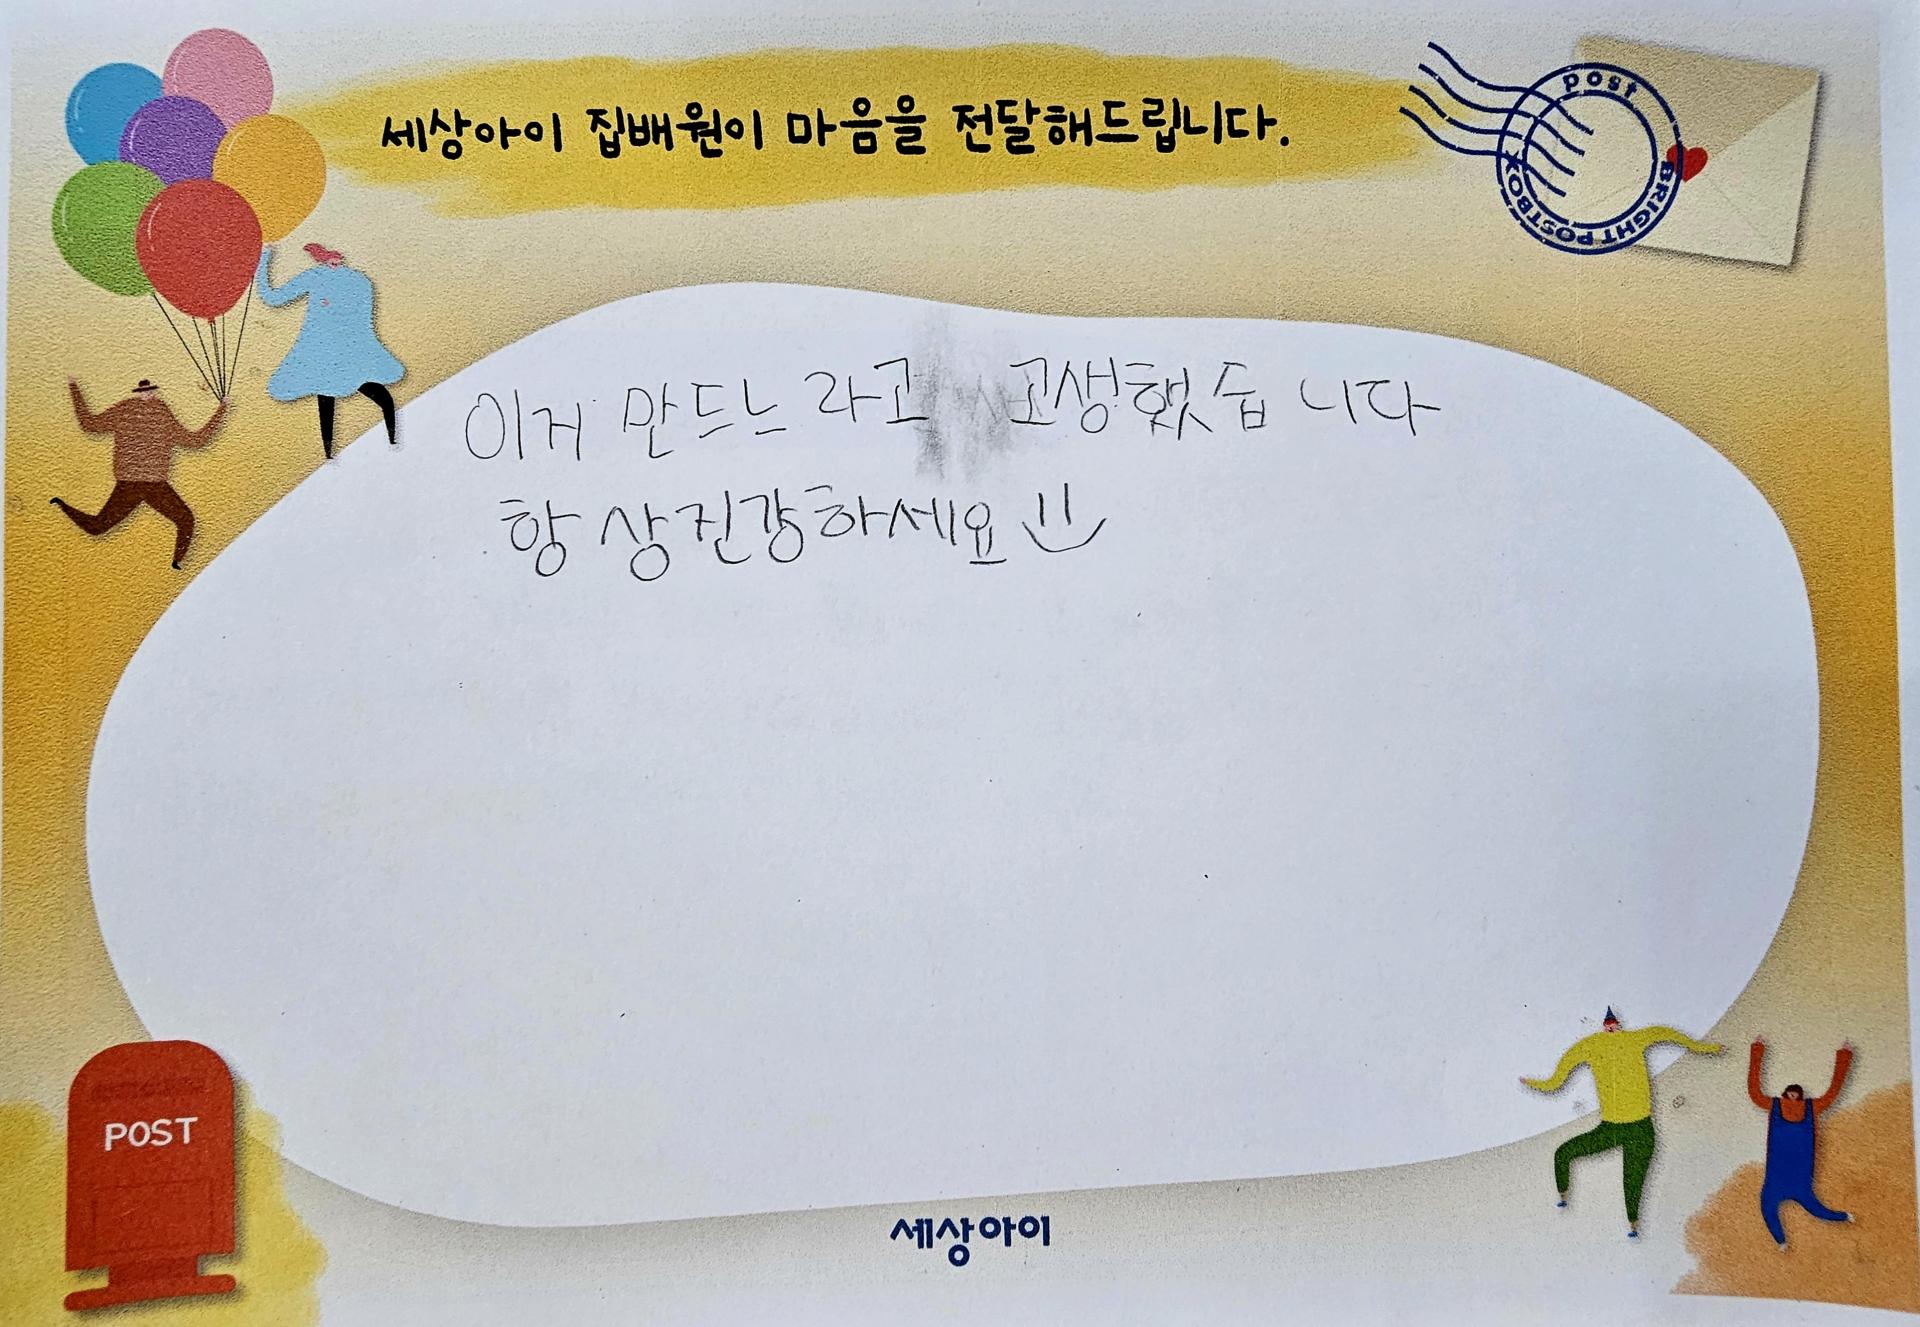 세상아이 집배원이 마음을 전달해드립니다.
post
BRIGHT POSTBOX
이거 만드느라고 고생했습니다
항상건강하세요
POST
세상아이